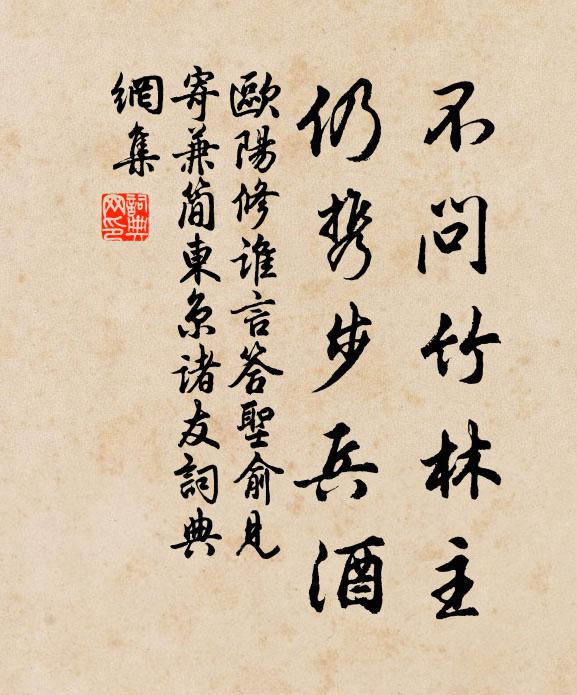 不問竹林主
仍携步兵酒
歐陽修誰言答聖俞見
寄兼簡東京諸友詞典
網集
詞典
网印